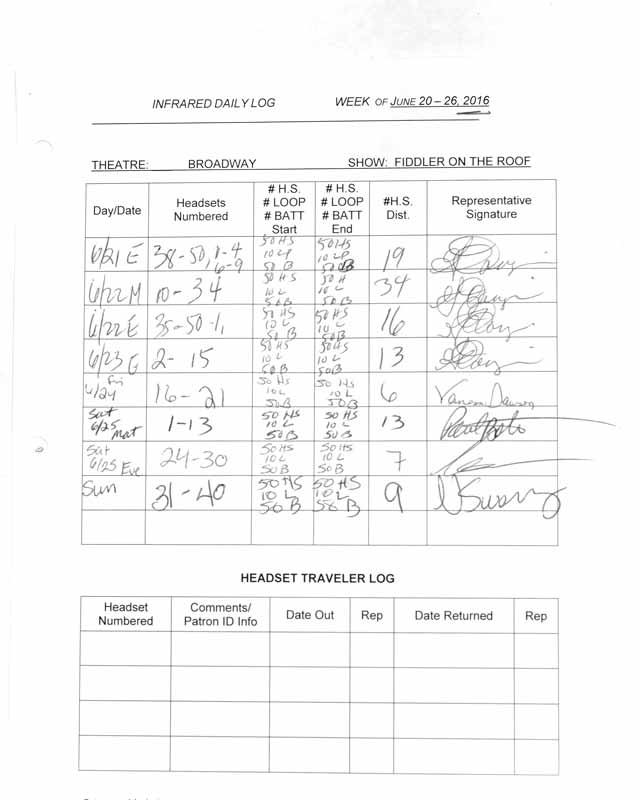 INFRARED DAILY LOG WEEK OF JUNE 20 – 26, 2016
THEATRE: BROADWAY SHOW: FIDDLER ON THE ROOF
Day/Date Headsets Numbered # H.S. # LOOP # BATT Start # H.S. # LOOP # BATT End #H.S. Dist. Representative Signature
6/21 E 38-50, 1-4 6-9 50 HS 10 LP 50 B 50 HS 10 LP 50 B 19
6/22 M 10-34 50 HS 10 L 50 B 50 H 10 L 50 B 34
6/22 E 35-50-1, 50 HS 10 L 50 B 50 HS 10 L 50 B 16
6/23 E 2-15 50 HS 10 L 50 B 50 HS 10 L 50 B 13
6/24 Fri 16-21 50 HS 10 L 50 B 50 HS 10 L 50 B 6 Vanessa Dawson
Sat 6/25 Mat 1-13 50 HS 10 L 50 B 50 HS 10 L 50 B 13
Sat 6/25 Eve 24-30 50 HS 10 L 50 B 50 HS 10 L 50 B 7
Sun 31-40 50 HS 10 L 50 B 50 HS 10 L 50 B 9
HEADSET TRAVELER LOG
Headset Numbered Comments/ Patron ID Info Date Out Rep Date Returned Rep